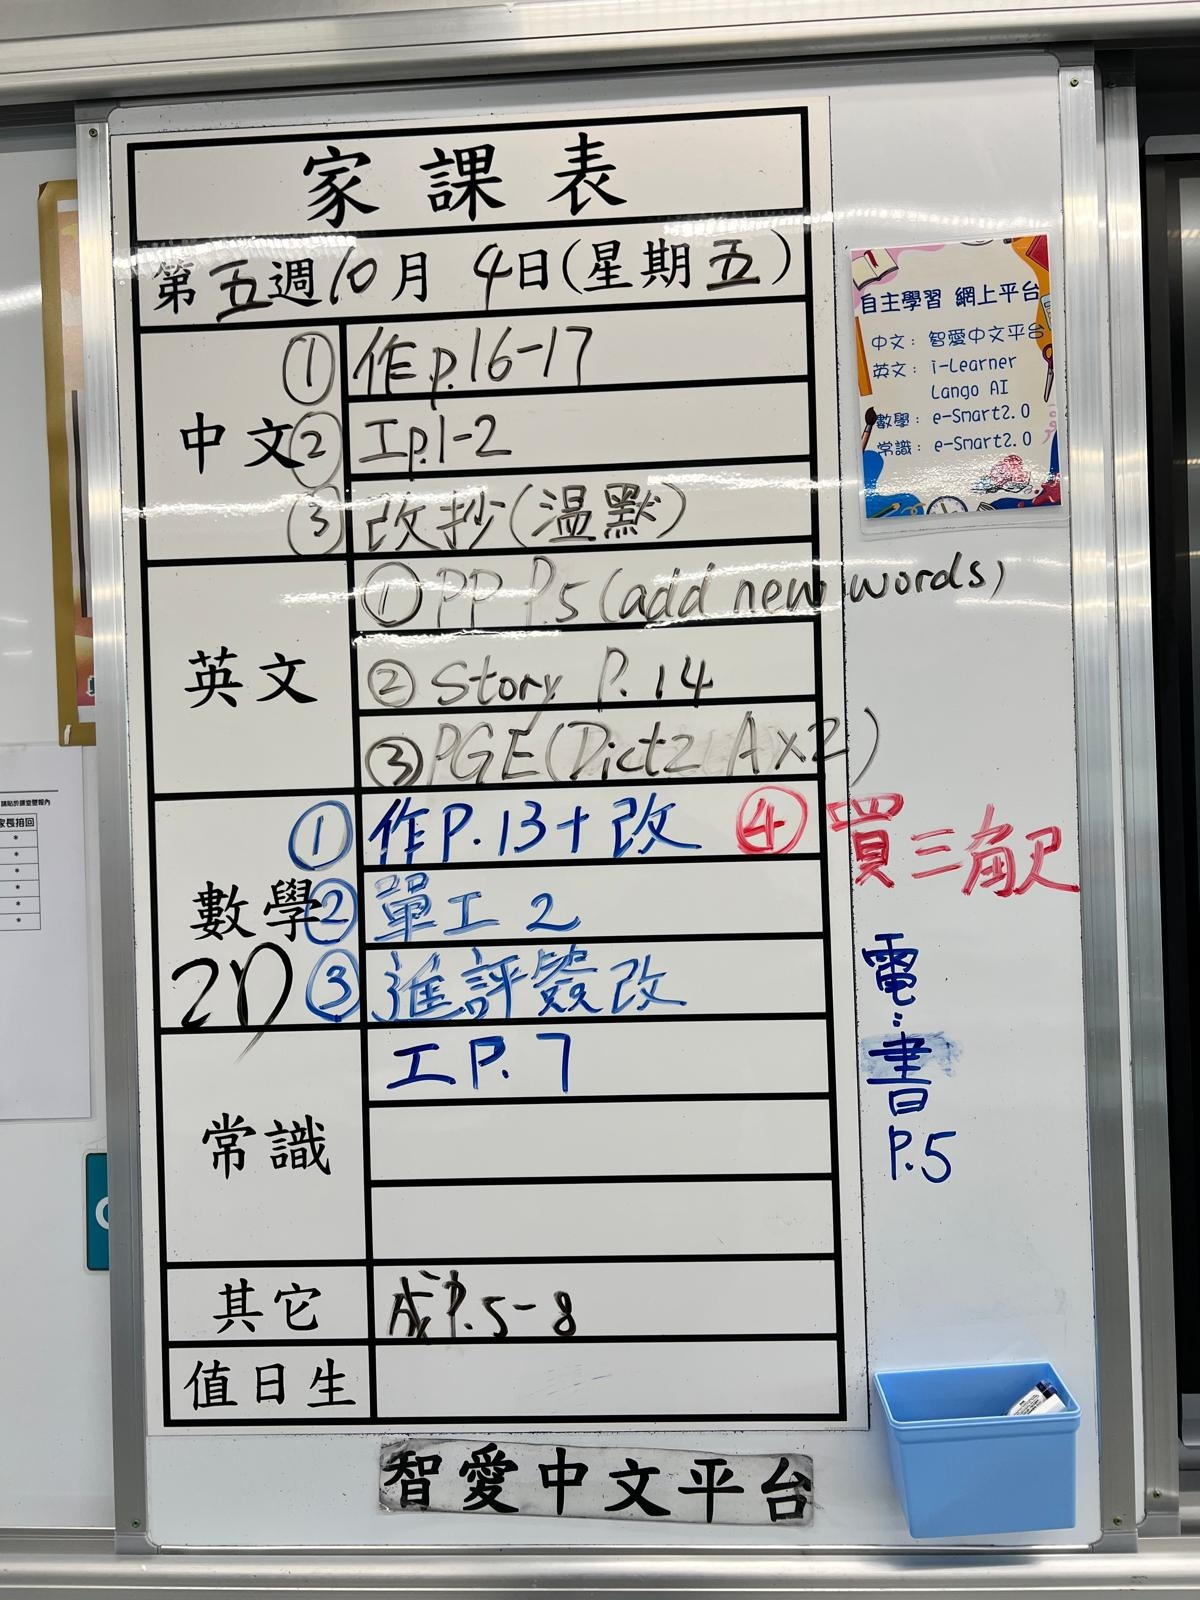 家課表
第五週10月4日(星期五)
中文
① 作p.16-17
② 工p.1-2
③ 改抄(温默)
英文
① PP P.5 (add new words)
② Story P.14
③ PGE (Dict2 A x2)
數學
2D
① 作P.13+改
② 單工2
③ 進評簽改
④ 買三角尺
常識
工P.7
電:書P.5
其它
成P.5-8
值日生
智愛中文平台
自主學習 網上平台
中文: 智愛中文平台
英文: i-Learner
Lango AI
數學: e-Smart2.0
常識: e-Smart2.0
家長拍回
*
*
*
*
*